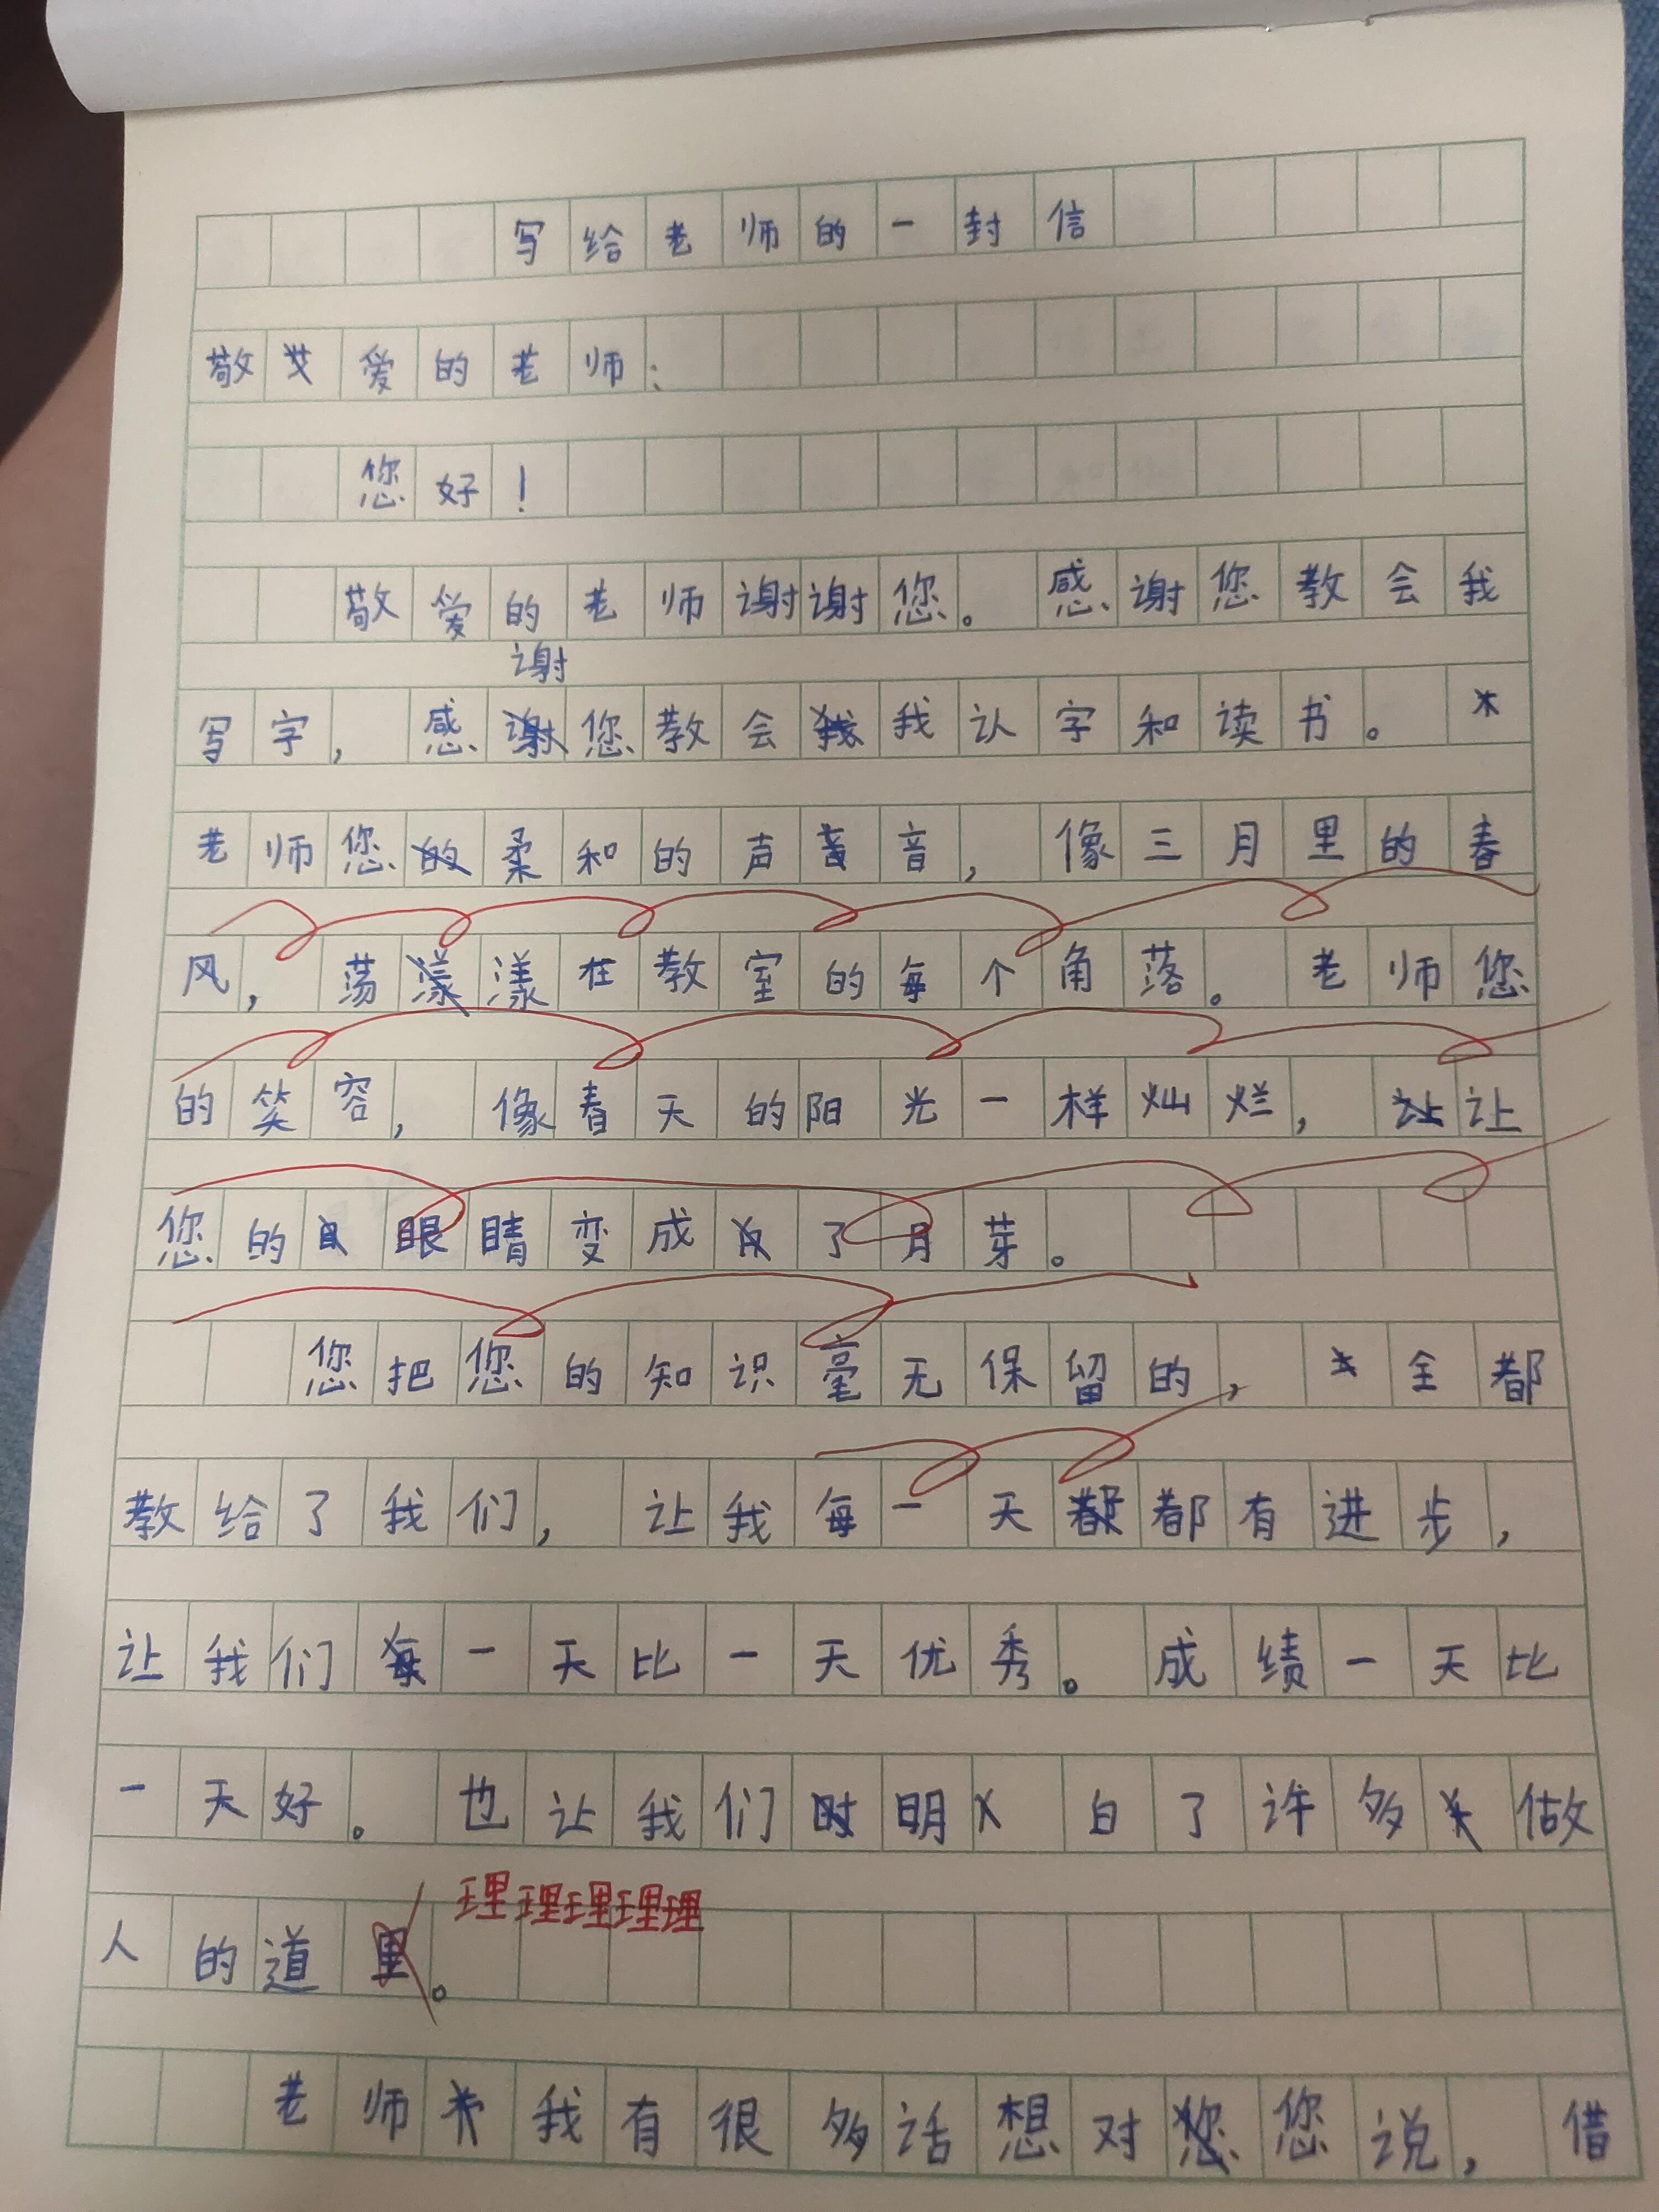 写给老师的一封信
敬爱的老师:
您好!
敬爱的老师谢谢您。感谢您教会我
谢
写字,感您教会我认字和读书。
老师您柔和的声音,像三月里的春
风,荡漾在教室的每个角落。老师您
的笑容,像春天的阳光一样灿烂,让
您的眼睛变成了月芽。
您把您的知识毫无保留的,全都
教给了我们,让我每一天都有进步,
让我们每一天比一天优秀。成绩一天比
一天好。也让我们明白了许多做
理理理理理
人的道里。
老师我有很多话想对您说,借